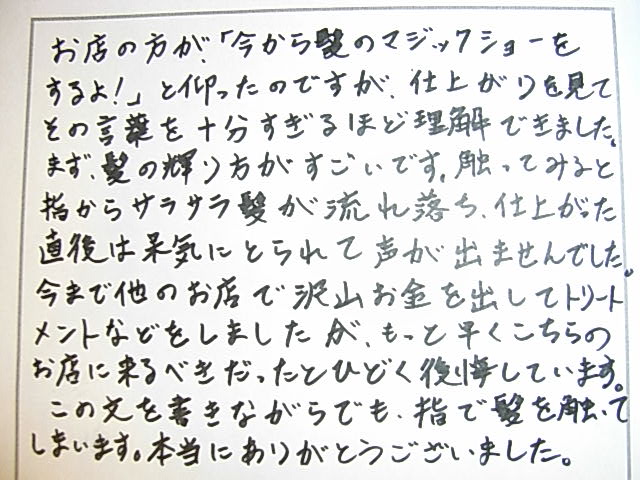 お店の方が、「今から髪のマジックショーを
するよ!」と仰ったのですが、仕上がりを見て
その言葉を十分すぎるほど理解できました。
まず、髪の輝り方がすごいです。触ってみると
指からサラサラ髪が流れ落ち、仕上がった
直後は呆気にとられて声が出ませんでした。
今まで他のお店で沢山お金を出してトリート
メントなどをしましたが、もっと早くこちらの
お店に来るべきだったとひどく後悔しています。
この文を書きながらでも、指で髪を触って
しまいます。本当にありがとうございました。